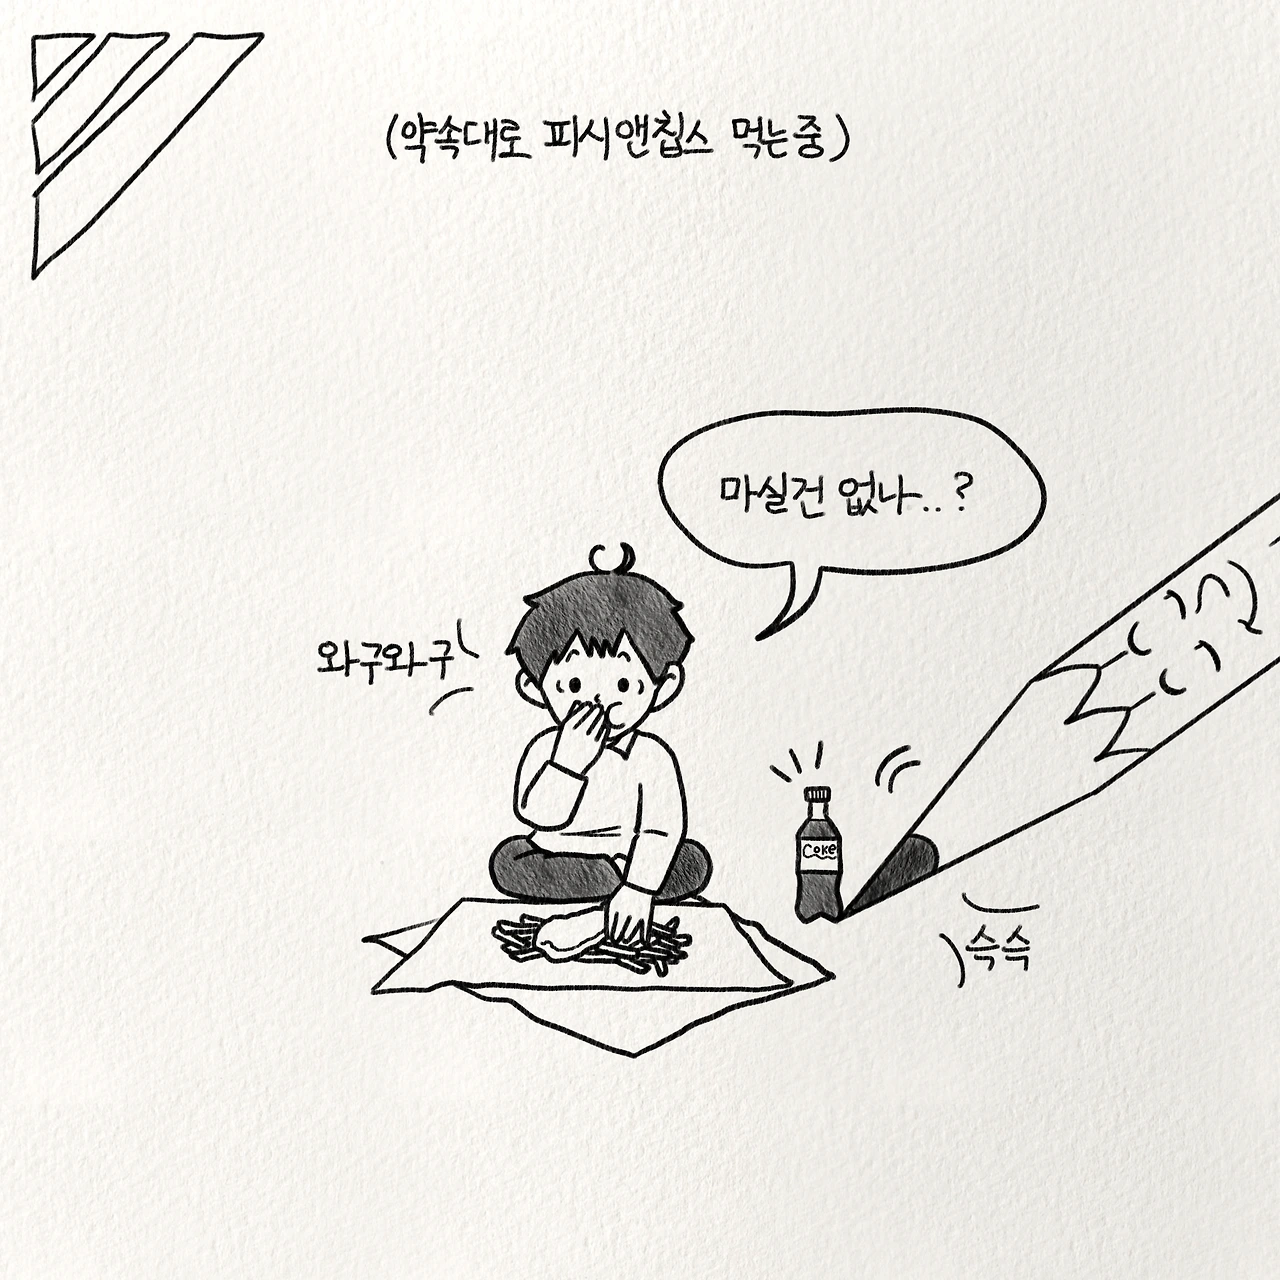 (약속대로 피시앤칩스 먹는중)
마실건 없나..?
와구와구
Coke
슥슥